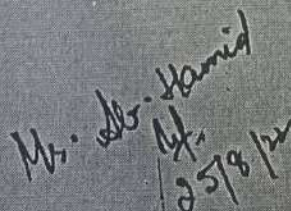 Mr. Ab. Hamid
25/8/22